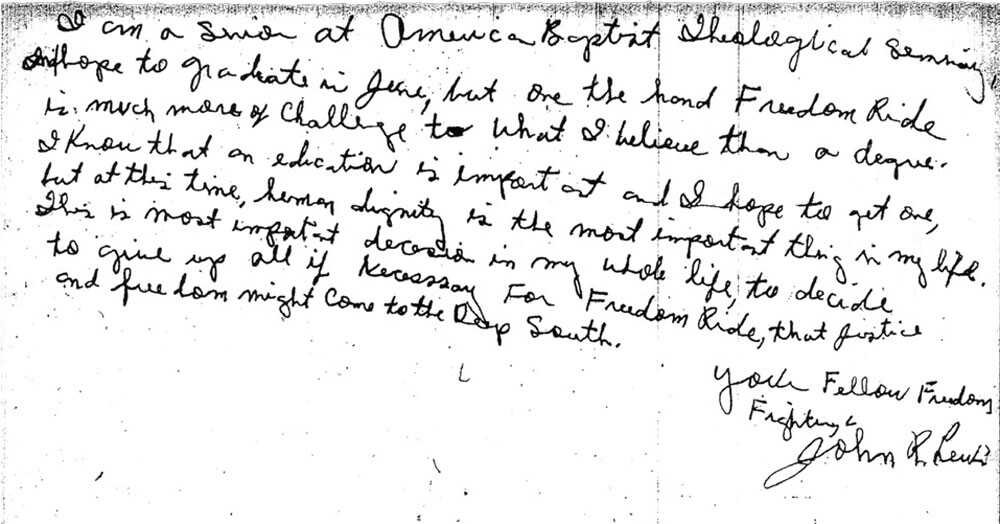 I am a Senior at American Baptist Theological Seminary
and hope to graduate in June, but one the hand Freedom Ride
is much more of challenge to what I believe than a degree.
I Know that an education is important and I hope to get one,
but at this time, human dignity is the most important thing in my life.
This is most important decision in my whole life, to decide
to give up all if Necessary For Freedom Ride, that Justice
and freedom might Come to the Deep South.
Your Fellow Freedom
Fighting
John R. Lewis